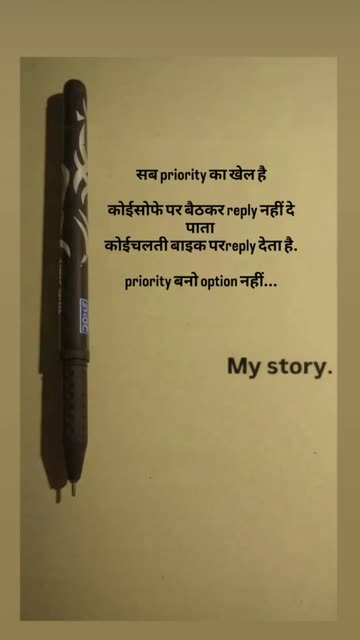 सब priority का खेल है
कोईसोफे पर बैठकर reply नहीं दे
पाता
कोईचलती बाइक परreply देता है.
priority बनो option नहीं...
My story.